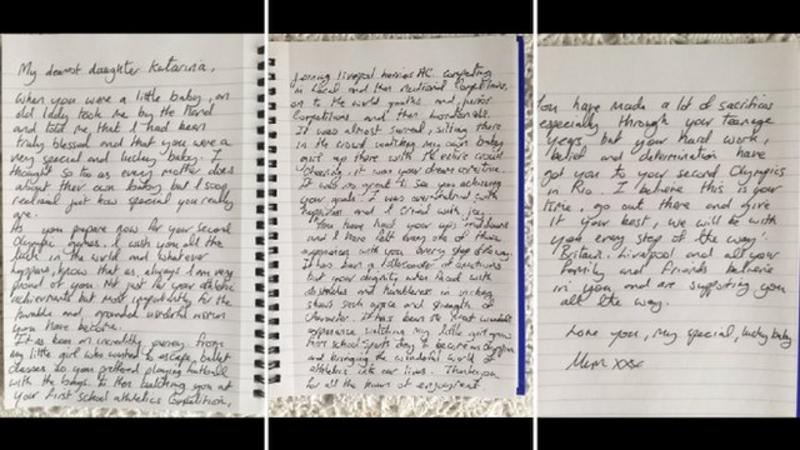 My dearest daughter Katarina,
When you were a little baby, an
old lady took me by the hand
and told me, that I had been
truly blessed and that you were a
very special and lucky baby. I
thought so too as every mother does
about their own baby but I soon
realised just how special you really
are.
As you prepare now for your second
Olympic games. I wish you all the
luck in the world and whatever
happens, know that as always I am very
proud of you. Not just for your athletic
achievements but most importantly for the
humble and grounded wonderful woman
you have become.
It has been an incredible journey. From
my little girl who wanted to escape ballet
classes so you preferred playing football
with the boys. To then watching you at
your first school athletics competition,
joining Liverpool Harriers AC, competing
in local and then national competitions,
on to the world youths and junior
competitions and then
It was almost surreal, sitting there
in the crowd watching my own baby
out there with the entire crowd
cheering, it was your dream come true.
It was so great to see you achieving
your goals. I was overwhelmed with
happiness and I cried with joy.
You have had your ups and downs
and I have felt every one of those
experiences with you every step of the way.
It has been a rollercoaster of emotions
but your dignity when faced with
obstacles and humbleness in victory
shows such grace and strength of
character. It has been the most wonderful
experience watching my little girl grow
from school sports day to become an Olympian
and bringing the wonderful world of
athletics into our lives. Thank you
for all the hours of enjoyment.
You have made a lot of sacrifices
especially through your teenage
years, but your hard work,
belief and determination have
got you to your second Olympics
in Rio. I believe this is your
time, go out there and give
it your best, we will be with
you every step of the way!
Britain, Liverpool and all your
family and friends believe
in you and are supporting you
all the way.
Love you, my special, lucky baby
Mum xxx